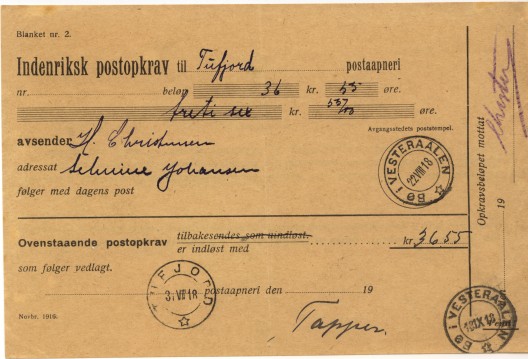 Blanket nr. 2.
Indenriksk postopkrav til Tufjord postaapneri
nr. beløp 36 kr. 55 øre.
treti sex kr. øre.
avsender H. Christensen
Avgangsstedets poststempel.
adressat Johansen
følger med dagens post
BØ I VESTERAALEN
22 VIII 18
Ovenstaaende postopkrav tilbakesendes som uindløst.
er indløst med kr 36 55
som følger vedlagt.
TUFJORD
31 VIII 18
postaapneri den 19
Novbr. 1916.
Tapper.
Opkrævsbeløpet mottat
19
BØ I VESTERAALEN
IX 18